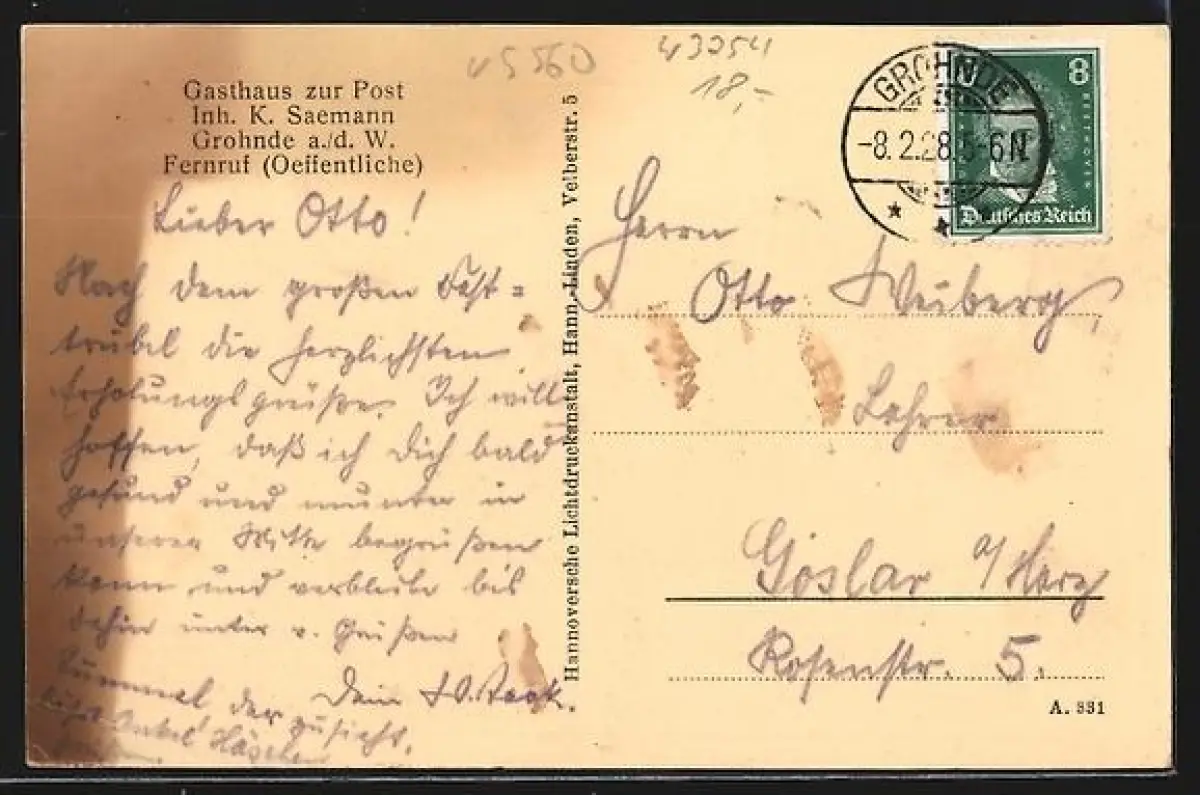 v5560
43254
18,-
Gasthaus zur Post
Inh. K. Saemann
Grohnde a./d. W.
Fernruf (Oeffentliche)
Lieber Otto!
Nach dem großen Fest=
trubel die herzlichsten
Erholungsgrüße. Ich will
hoffen, daß ich Dich bald
gesund und munter in
unserer Mitte begrüßen
kann und verbleibe bis
dahin unter v. Grüßen
Dein
der zusieht,
Onkel Häschen
Hannoversche Lichtdruckanstalt, Hann.-Linden, Velberstr. 5
GROHNDE
-8.2.28.5-6N
8
Deutsches Reich
Herrn
Otto Weiberg,
Lehrer
Goslar a/Harz
Rosenstr. 5.
A. 331